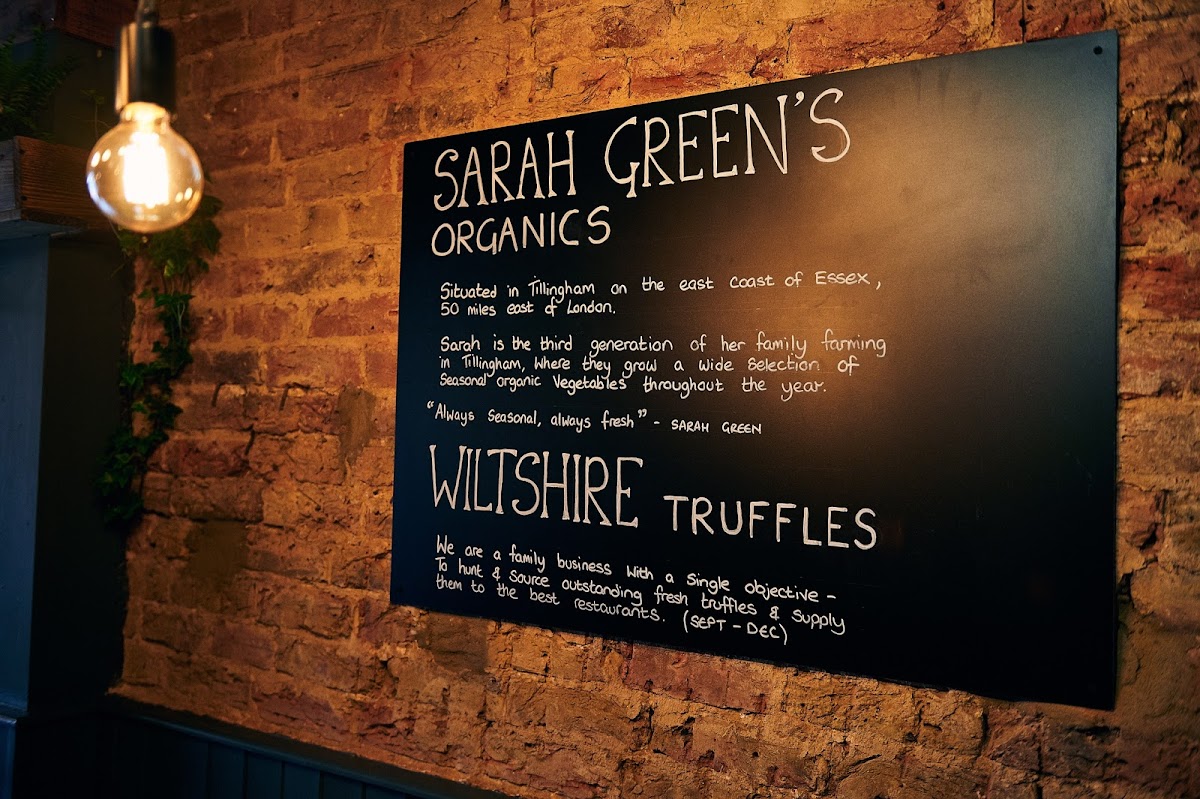 SARAH GREEN'S
ORGANICS
Situated in Tillingham on the east coast of Essex,
50 miles east of London.
Sarah is the third generation of her family farming
in Tillingham, Where they grow a wide selection of
Seasonal organic Vegetables throughout the year.
"Always Seasonal, always fresh" - SARAH GREEN
WILTSHIRE TRUFFLES
We are a family business with a single objective -
To hunt & source outstanding fresh truffles & supply
them to the best restaurants. (SEPT - DEC)